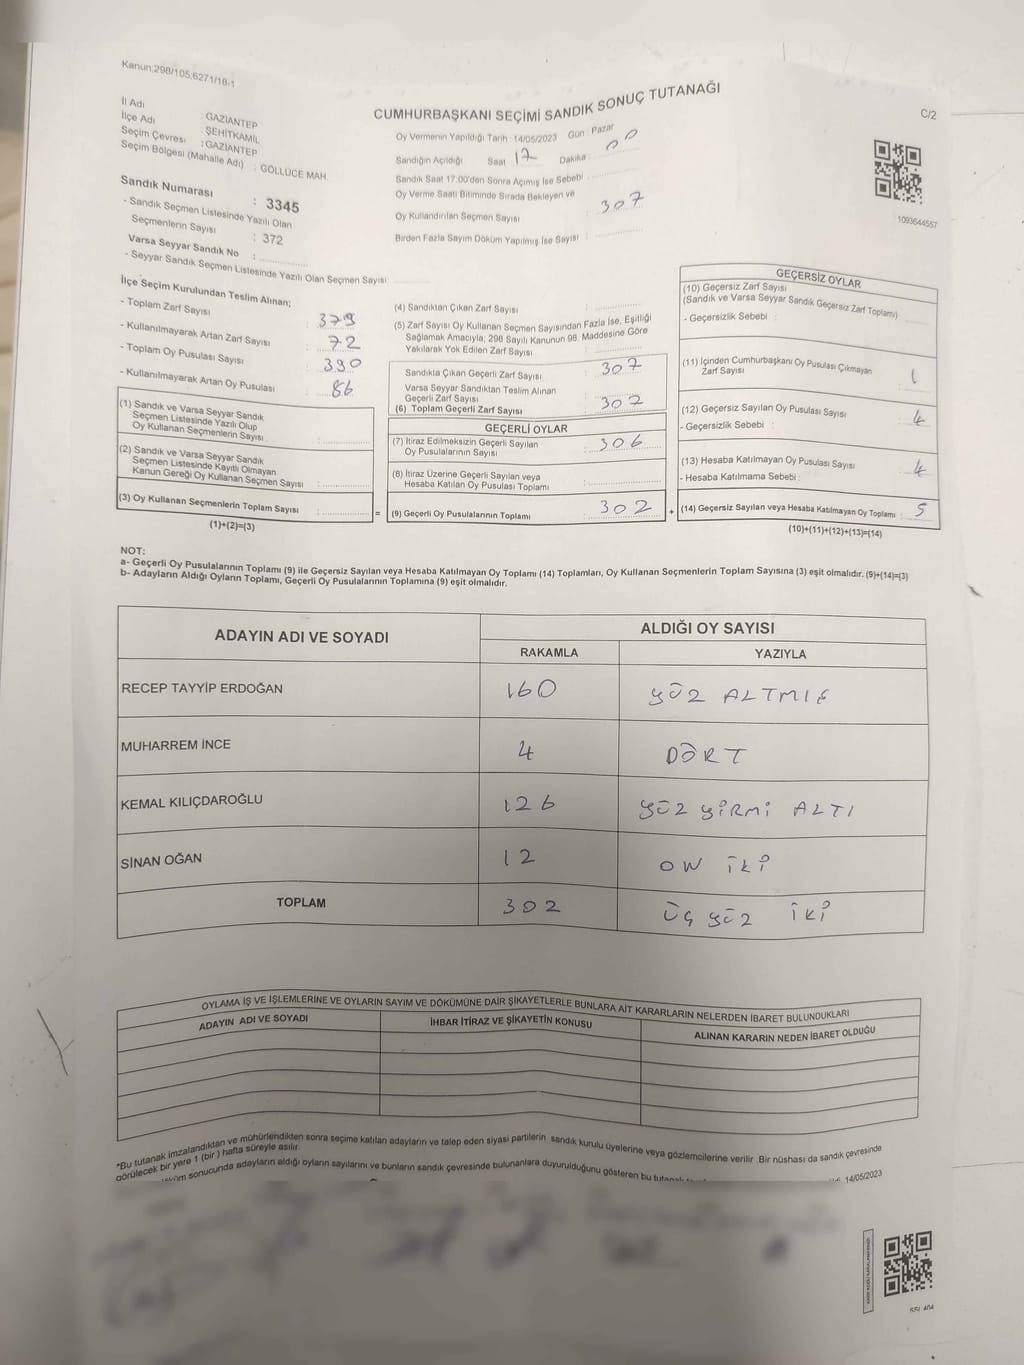 Kanun:298/105,6271/18-1
CUMHURBAŞKANI SEÇİMİ SANDIK SONUÇ TUTANAĞI
C/2
İl Adı : GAZİANTEP
İlçe Adı : ŞEHİTKAMİL
Seçim Çevresi : GAZİANTEP
Seçim Bölgesi (Mahalle Adı) : GÖLLÜCE MAH.
Oy Vermenin Yapıldığı Tarih 14/05/2023 Gün : Pazar
Sandığın Açıldığı Saat 17 Dakika : 00
Sandık Saat 17:00'den Sonra Açımış İse Sebebi
Oy Verme Saati Bitiminde Sırada Bekleyen ve
Oy Kullandırılan Seçmen Sayısı : 307
Birden Fazla Sayım Döküm Yapılmış İse Sayısı :
1093644557
Sandık Numarası : 3345
- Sandık Seçmen Listesinde Yazılı Olan
Seçmenlerin Sayısı : 372
Varsa Seyyar Sandık No :
- Seyyar Sandık Seçmen Listesinde Yazılı Olan Seçmen Sayısı
İlçe Seçim Kurulundan Teslim Alınan;
- Toplam Zarf Sayısı : 379
- Kullanılmayarak Artan Zarf Sayısı : 72
- Toplam Oy Pusulası Sayısı : 390
- Kullanılmayarak Artan Oy Pusulası : 86
(1) Sandık ve Varsa Seyyar Sandık
Seçmen Listesinde Yazılı Olup
Oy Kullanan Seçmenlerin Sayısı :
(2) Sandık ve Varsa Seyyar Sandık
Seçmen Listesinde Kayıtlı Olmayan
Kanun Gereği Oy Kullanan Seçmen Sayısı :
(3) Oy Kullanan Seçmenlerin Toplam Sayısı :
(1)+(2)=(3)
=
(4) Sandıktan Çıkan Zarf Sayısı :
(5) Zarf Sayısı Oy Kullanan Seçmen Sayısından Fazla İse, Eşitliği
Sağlamak Amacıyla; 298 Sayılı Kanunun 98. Maddesine Göre
Yakılarak Yok Edilen Zarf Sayısı
Sandıkta Çıkan Geçerli Zarf Sayısı : 307
Varsa Seyyar Sandıktan Teslim Alınan
Geçerli Zarf Sayısı
(6) Toplam Geçerli Zarf Sayısı : 307
GEÇERLİ OYLAR
(7) İtiraz Edilmeksizin Geçerli Sayılan
Oy Pusulalarının Sayısı : 306
(8) İtiraz Üzerine Geçerli Sayılan veya
Hesaba Katılan Oy Pusulası Toplamı :
(9) Geçerli Oy Pusulalarının Toplamı : 302
+
GEÇERSİZ OYLAR
(10) Geçersiz Zarf Sayısı
(Sandık ve Varsa Seyyar Sandık Geçersiz Zarf Toplamı)
- Geçersizlik Sebebi :
(11) İçinden Cumhurbaşkanı Oy Pusulası Çıkmayan
Zarf Sayısı : 1
(12) Geçersiz Sayılan Oy Pusulası Sayısı : 4
- Geçersizlik Sebebi :
(13) Hesaba Katılmayan Oy Pusulası Sayısı : 4
- Hesaba Katılmama Sebebi :
(14) Geçersiz Sayılan veya Hesaba Katılmayan Oy Toplamı : 5
(10)+(11)+(12)+(13)=(14)
NOT:
a- Geçerli Oy Pusulalarının Toplamı (9) ile Geçersiz Sayılan veya Hesaba Katılmayan Oy Toplamı (14) Toplamları, Oy Kullanan Seçmenlerin Toplam Sayısına (3) eşit olmalıdır. (9)+(14)=(3)
b- Adayların Aldığı Oyların Toplamı, Geçerli Oy Pusulalarının Toplamına (9) eşit olmalıdır.
ADAYIN ADI VE SOYADI ALDIĞI OY SAYISI
RAKAMLA YAZIYLA
RECEP TAYYİP ERDOĞAN 160 YÜZ ALTMIŞ
MUHARREM İNCE 4 DÖRT
KEMAL KILIÇDAROĞLU 126 YÜZ YİRMİ ALTI
SİNAN OĞAN 12 ON İKİ
TOPLAM 302 ÜÇ YÜZ İKİ
OYLAMA İŞ VE İŞLEMLERİNE VE OYLARIN SAYIM VE DÖKÜMÜNE DAİR ŞİKAYETLERLE BUNLARA AİT KARARLARIN NELERDEN İBARET BULUNDUKLARI
ADAYIN ADI VE SOYADI İHBAR İTİRAZ VE ŞİKAYETİN KONUSU ALINAN KARARIN NEDEN İBARET OLDUĞU
*Bu tutanak imzalandıktan ve mühürlendikten sonra seçime katılan adayların ve talep eden siyasi partilerin sandık kurulu üyelerine veya gözlemcilerine verilir. Bir nüshası da sandık çevresinde
görülecek bir yere 1 (bir) hafta süreyle asılır.
sonucunda adayların aldığı oyların sayılarını ve bunların sandık çevresinde bulunanlara duyurulduğunu gösteren bu 14/05/2023